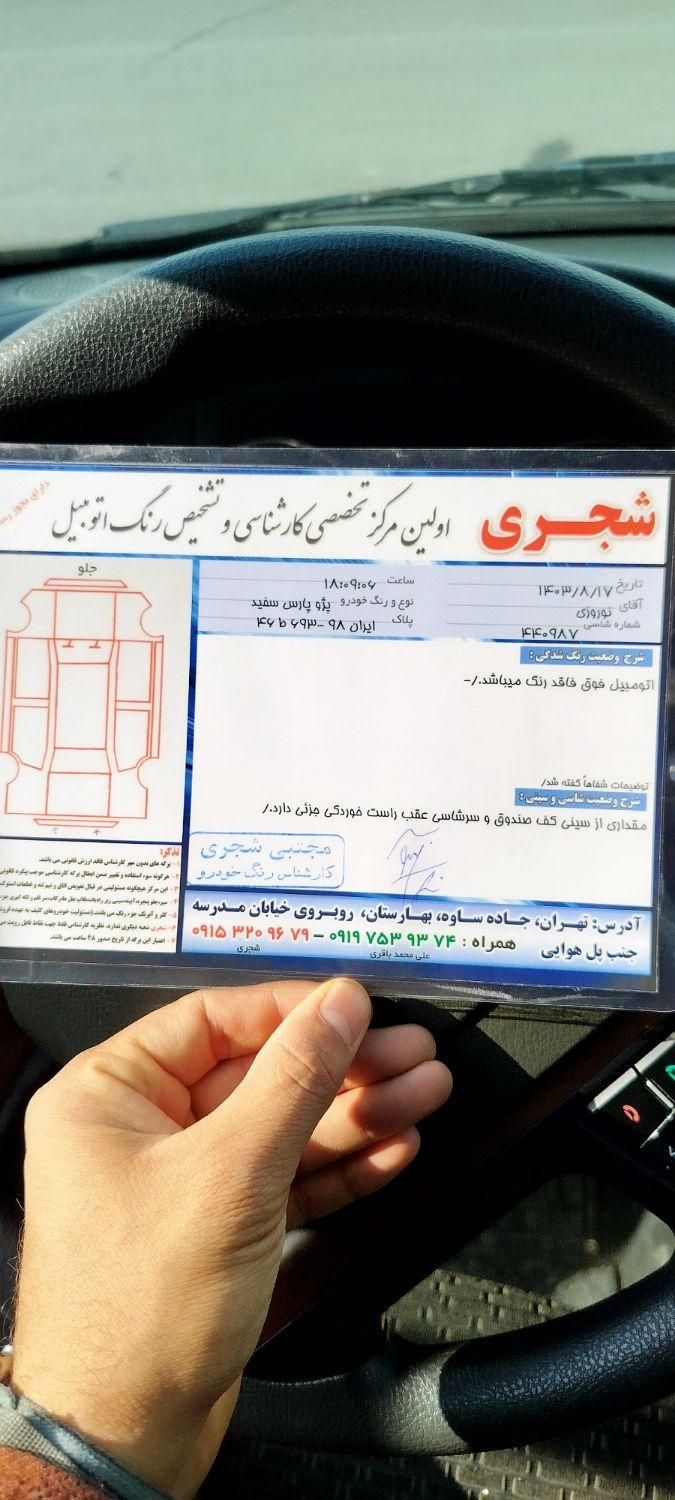 شجری
اولین مرکز تخصصی کارشناسی و تشخیص رنگ اتومبیل
دارای مجوز
تاریخ ۱۴۰۳/۸/۱۷
ساعت ۱۸:۰۹:۰۶
آقای نوروزی
نوع و رنگ خودرو پژو پارس سفید
شماره شاسی ۴۴۰۹۸۷
پلاک ایران ۹۸ -۶۹۳ ط ۴۶
جلو
شرح وضعیت رنگ شدگی :
اتومبیل فوق فاقد رنگ میباشد./-
توضیحات شفاهاً گفته شد/
شرح وضعیت شاسی و سینی :
مقداری از سینی کف صندوق و سرشاسی عقب راست خوردگی جزئی دارد./
مجتبی شجری
کارشناس رنگ خودرو
تذکر:
۱- برگه های بدون مهر کارشناس فاقد ارزش قانونی می باشد.
۲- هرگونه سوء استفاده و تغییر ضمن ابطال برگه کارشناسی موجب پیگرد قانونی
۷- اعتبار این برگه از تاریخ صدور ۴۸ ساعت می باشد.
آدرس: تهران، جاده ساوه، بهارستان، روبروی خیابان مدرسه
جنب پل هوایی
همراه : ۰۹۱۹ ۷۵۳ ۹۳ ۷۴ – ۰۹۱۵ ۳۲۰ ۹۶ ۷۹
علی محمد باقری
شجری